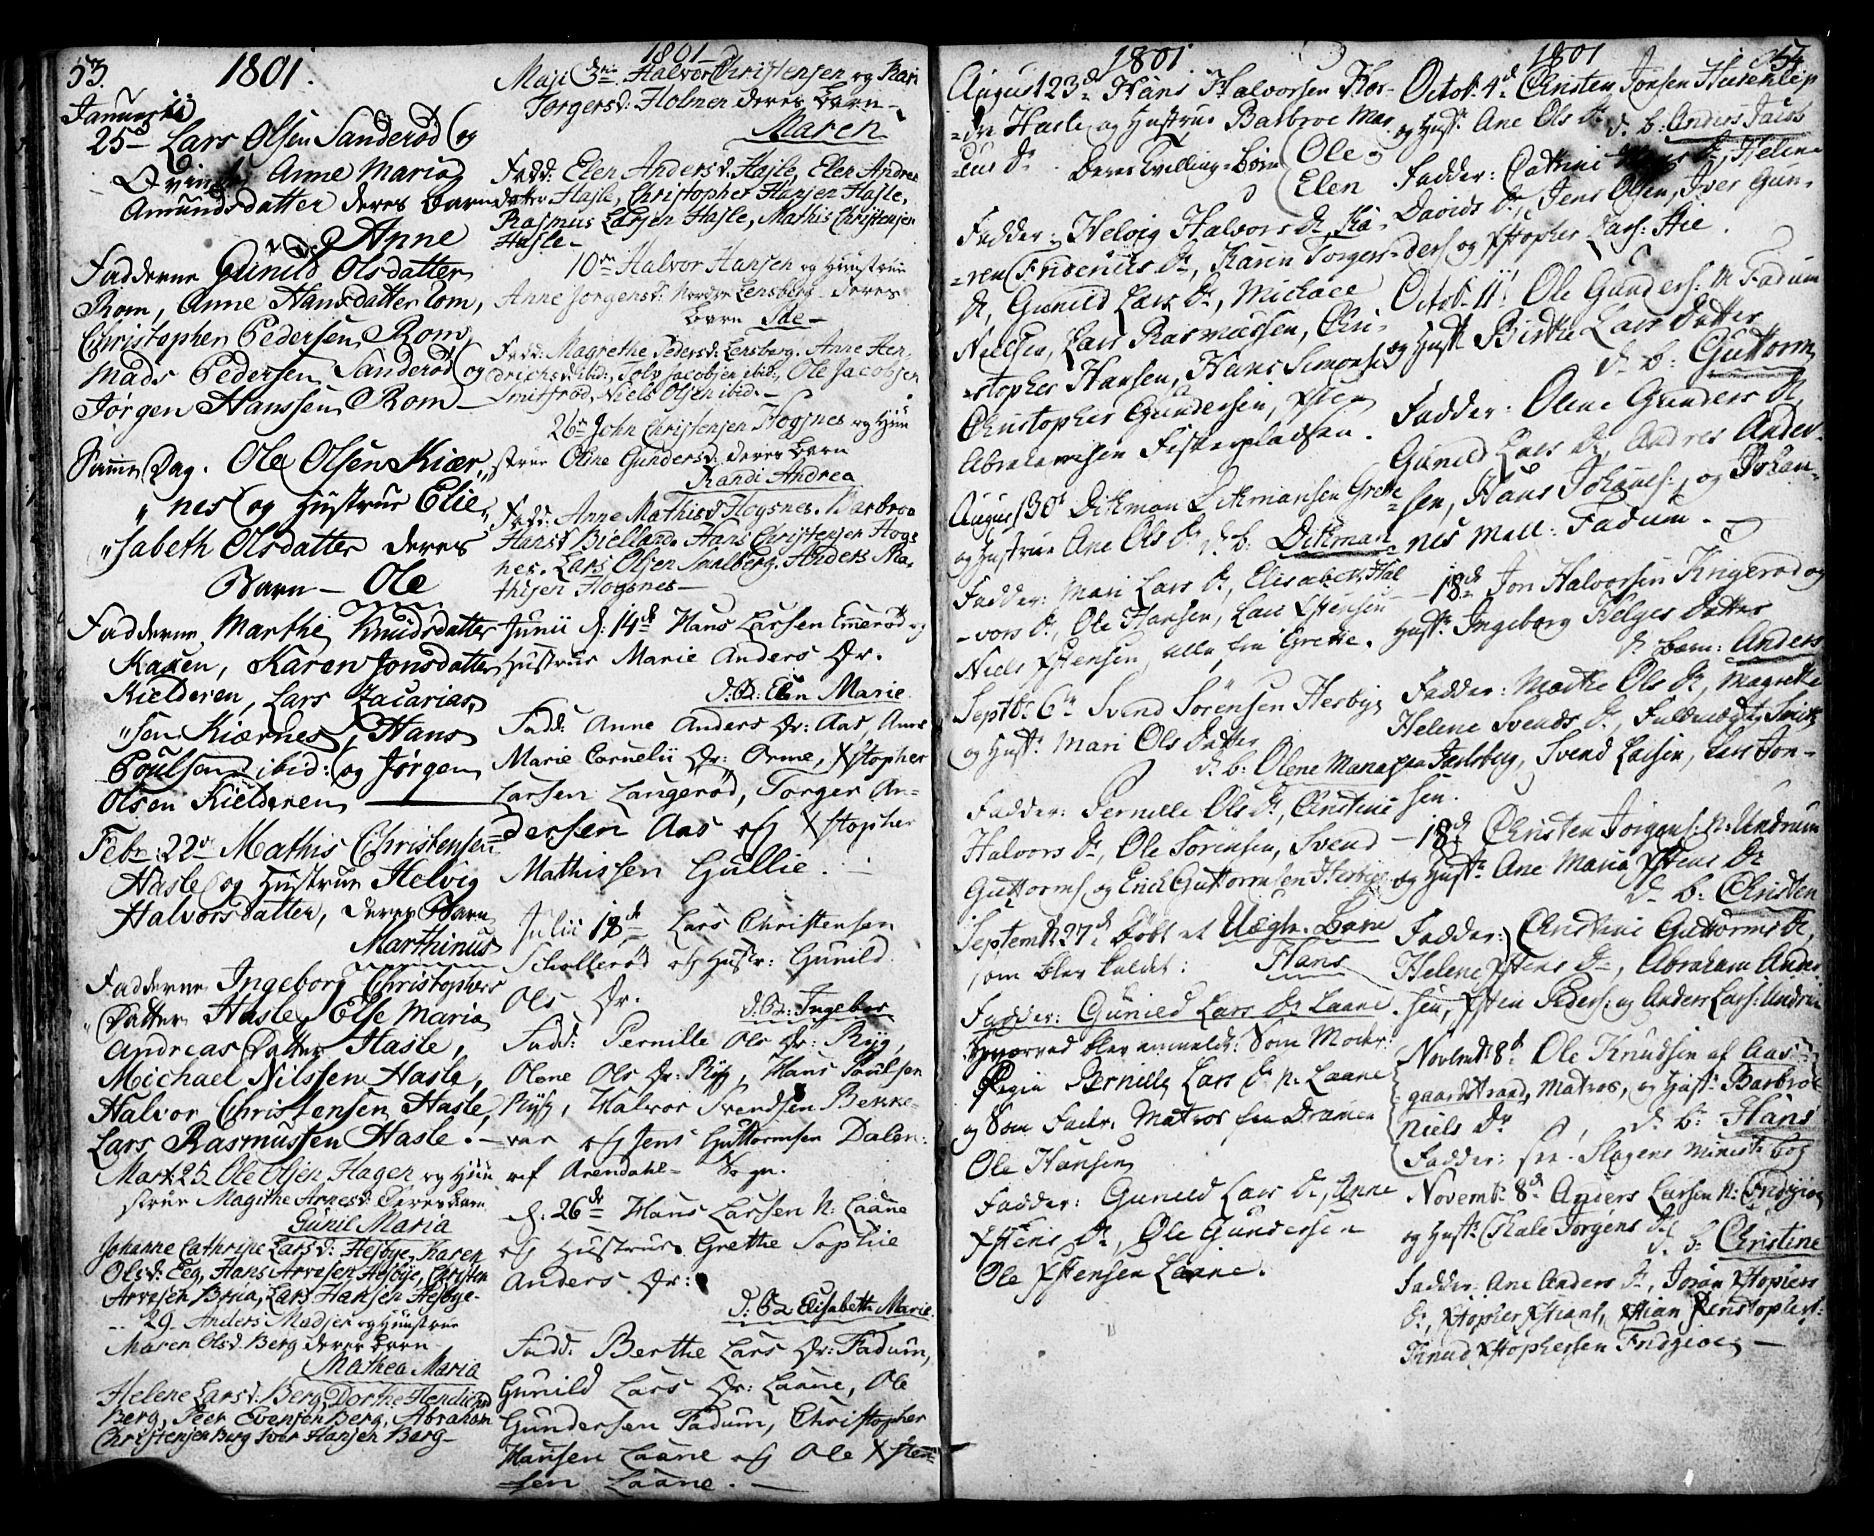 53.
1801.
Januarii
25 Lars Olsen Sanderød og
Qvinde Anne Maria
Amundsdatter deres Barn
Anne
Fadderne Gunild Olsdatter
Rom, Anne Hansdatter Rom,
Christopher Pedersen Rom,
Mads Pedersen Sanderød og
Jørgen Hanssen Rom
Samme Dag. Ole Olsen Kiær
nes og Hustrue Elie
sabeth Olsdatter deres
Barn – Ole
Fadderne Marthe Knudsdatter
Kaxen, Karen Jonsdatter
Kielderen, Lars Zacarias
sen Kiærnes, Hans
Poulsen ibid: og Jørgen
Olsen Kielderen
Febr: 22 Mathis Christensen
Hasle og Hustrue Helvig
Halvorsdatter, deres Barn
Marthinus
Fadderne Ingeborg Christophers
Datter Hasle, Else Maria
Andreas Datter Hasle,
Michael Nilssen Hasle,
Halvor Christensen Hasle,
Lars Rasmussen Hasle. –
Mart: 25. Ole Olsen Hagen og Huu
strue Magithe Arnesd: Deres barn
Gunil Maria
Johanne Cathrine Larsd: Hesbye, Karen
Olsd: Eeg, Hans Arvesen Hesbye, Christen
Arvesen Brua, Lars Hansen Hesbye.
29. Anders Madsen og Huustrue
Maren Olsd. Berg deres barn
Mathea Maria
Helene Larsd: Berg, Dorthe Hendichsd
Berg, Peer Evensen Berg, Abraham
Christensen Berg Iver Hansen Berg –
1801
Maji 3die Halvor Christensen og Kari
Torgersd: Holmen deres barn –
Maren
Fadd: Elen Andersd: Hasle, Elen Andrea
datter Hasle, Christopher Hansen Hasle,
Rasmus Larsen Hasle, Mathis Christensen
Hasle –
10 Halvor Hansen og Huustrue
Anne Jørgensd: Nordre Lensberg deres
barn Ide –
Fadd: Magrethe Pedersd: Lensberg, Anne Hen
drichsd: ibid:, Solv Jacobsen ibid:, Ole Jacobsen
Smitsrød, Niels Olsen ibid. –
26 John Christensen Hogsnes og Huu
strue Oline Gundersd: deres barn
Randi Andrea
Fadd: Anne Mathisd Hogsnes. Barbroe
Hansd Bielland. Hans Christensen Hogs
nes. Lars Olsen Smalberg. Anders Ma-
thisen Hogsnes –
Junii d: 14de Hans Larsen Emerød og
Hustrue Marie Anders Dr.
d: B: Elen Marie.
Fadd: Anne Anders Dr: Aas, Anne
Marie Cornelii Dr: Orme, Xstopher
Larsen Langerød, Torger An-
dersen Aas og Xstopher
Mathissen Gullie. –
Julii 18de Lars Christensen
Schollerød og Hustr: Gunild
Ols Dr.
d: B: Ingebor
Fadd: Pernille Ols Dr: Ryg,
Olene Ols Dr: Ryg, Hans Poulsen
Ryg, Halvor Svendsen Bekke-
var og Jens Guttormsen Dalen
af Arendahls Sogn.
d: 26de Hans Larsen N: Laane
og Hustrue Grethe Sophie
Anders Dr:
d: B: Elisabeth Marie.
Fadd: Berthe Lars Dr: Fadum,
Gunild Lars Dr: Laane, Ole
Gundersen Fadum, Christopher
Hansen Laane og Ole Xsten-
sen Laane. –
1801.
August 23d Hans Halvorsen Nor-
dre Hasle og Hustrue Barbroe Mar
cus Dr Deres Tvilling-Børn Ole
Elen
Fadder: Helvig Halvors Dr, Ka-
ren Friderichs Dr, Karen Torgers
Dr, Gunild Lars Dr, Michael
Nielsen, Lars Rasmussen, Chri-
stopher Hansen, Hans Simonsen
Christopher Gundersen, Xsten
Abrahamsen Fiskerpladsen.
August 30d Ditman Ditmansen Grette
og Hustrue Ane Ols Dr d: b: Ditman
Fadder: Mari Lars Dr, Elisabeth Hal
vors Dr, Ole Hansen, Lars Xstensen
Niels Xstensen, alle fra Grette.
Septbr 6te Svend Sörensen Herbye
og Hustr: Mari Ols Datter
d: b: Olene Maria
Fadder: Pernille Ols Dr, Christine
Halvors Dr, Ole Sorensen, Svend
Guttorms og Erich Guttormsen Herbye
Septembr 27d Döbt et Uægte Barn
som blev kaldet: Hans
Fadder: Gunild Lars Dr Laane.
Hvorved blev anmeldt: Som Moder
Pigen Pernille Lars Dr N: Laane
og Som Fader. Matros fra Dramen
Ole Hansen
Fadder: Gunild Lars Dr, Anne
Xstens Dr, Ole Gundersen
Ole Xstensen Laane.
1801
54.
Octob. 4d Christen Jonsen Husenlep
og Hust: Ane Ols Dr d. b: Anders Jacob
Fadder: Cathrine Dr, Helene
Davids Dr, Jens Olsen, Iver Gun-
ders: og Xstopher Lars: Hie.
Octob. 11. Ole Gunders: N Fadum
og Hustr. Birthe Lars Datter
d: b: Guttorm
Fadder: Olene Gunders Dr,
Gunild Lars Dr, Andres Ander-
sen, Hans Johanes:, og Johan-
nes Mell: Fadum.
18de Jon Halvorsen Ringerød og
Hust: Ingeborg Helges Datter
d: barn: Anders
Fadder: Marthe Ols Dr, Magrethe
Helene Svends Dr, Fuldmægtig Smith
paa Jarlsberg, Svend Larsen, Lars Jon-
sen.
18d Christen Jörgens: N: Undrum
og Hust: Ane Maria Xstens Dr
d: b: Christen
Fadder: Christine Guttorms Dr,
Helene Xstens Dr, Abraham Ander
sen, Xsten Peders: og Anders Lars: Undrum
Novembr 8d Ole Knudsen af Aas-
gaardstrand, Matros, og Hust: Barbroe
Niels Dr d: b: Hans
Fadder: see Slagens Minist: bog
Novemb: 8d Anders Larsen N: Fridgioe
og Hust: Kale Jörgens Dr
d. b: Christine
Fadder: Ane Anders Dr, Joran Xstophers
Dr, Xstopher Xstians, Xstian Xenstophers:
Knud Xstophersen Fridgioe –